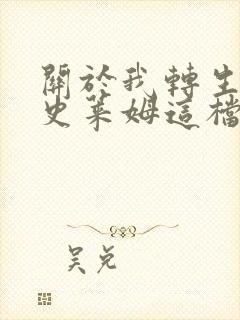 關於我轉生
史萊姆這檔
吴兑